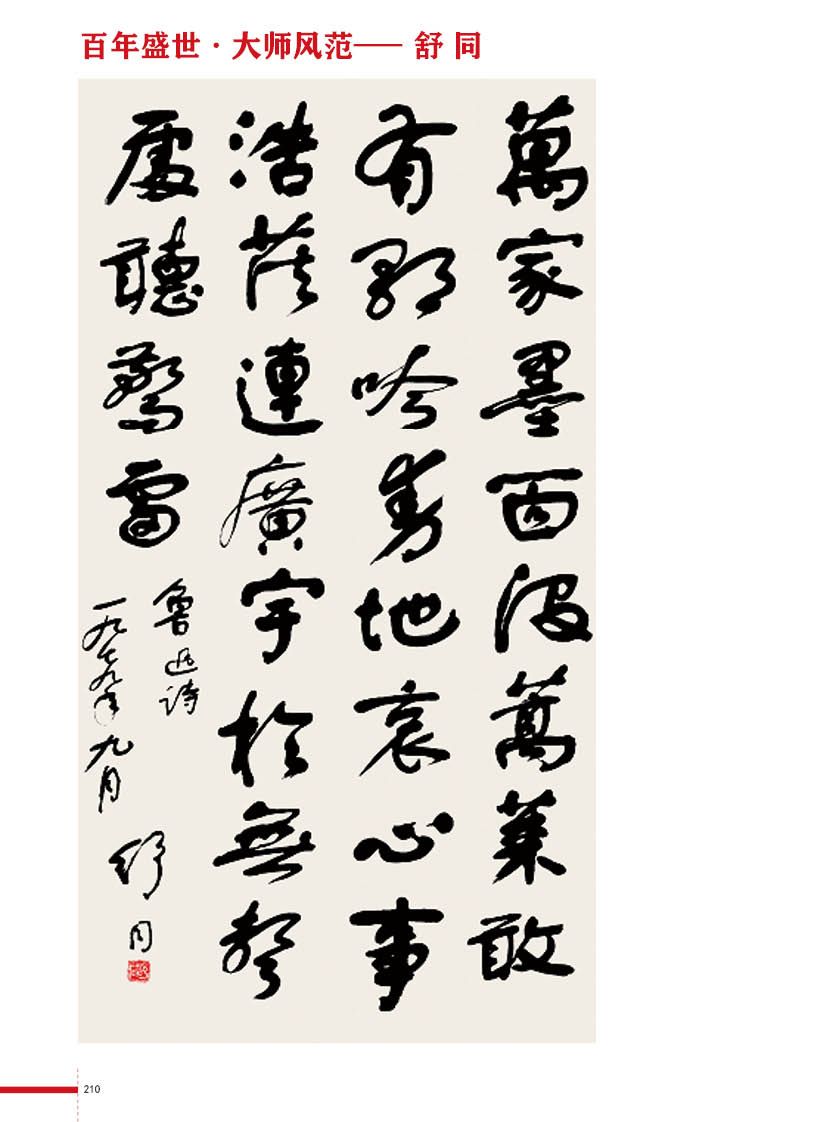 百年盛世·大师风范—— 舒 同
萬家墨面沒蒿萊敢
有歌吟動地哀心事
浩茫連廣宇於無聲
處聽驚雷
魯迅詩
一九七九年九月
舒同
210